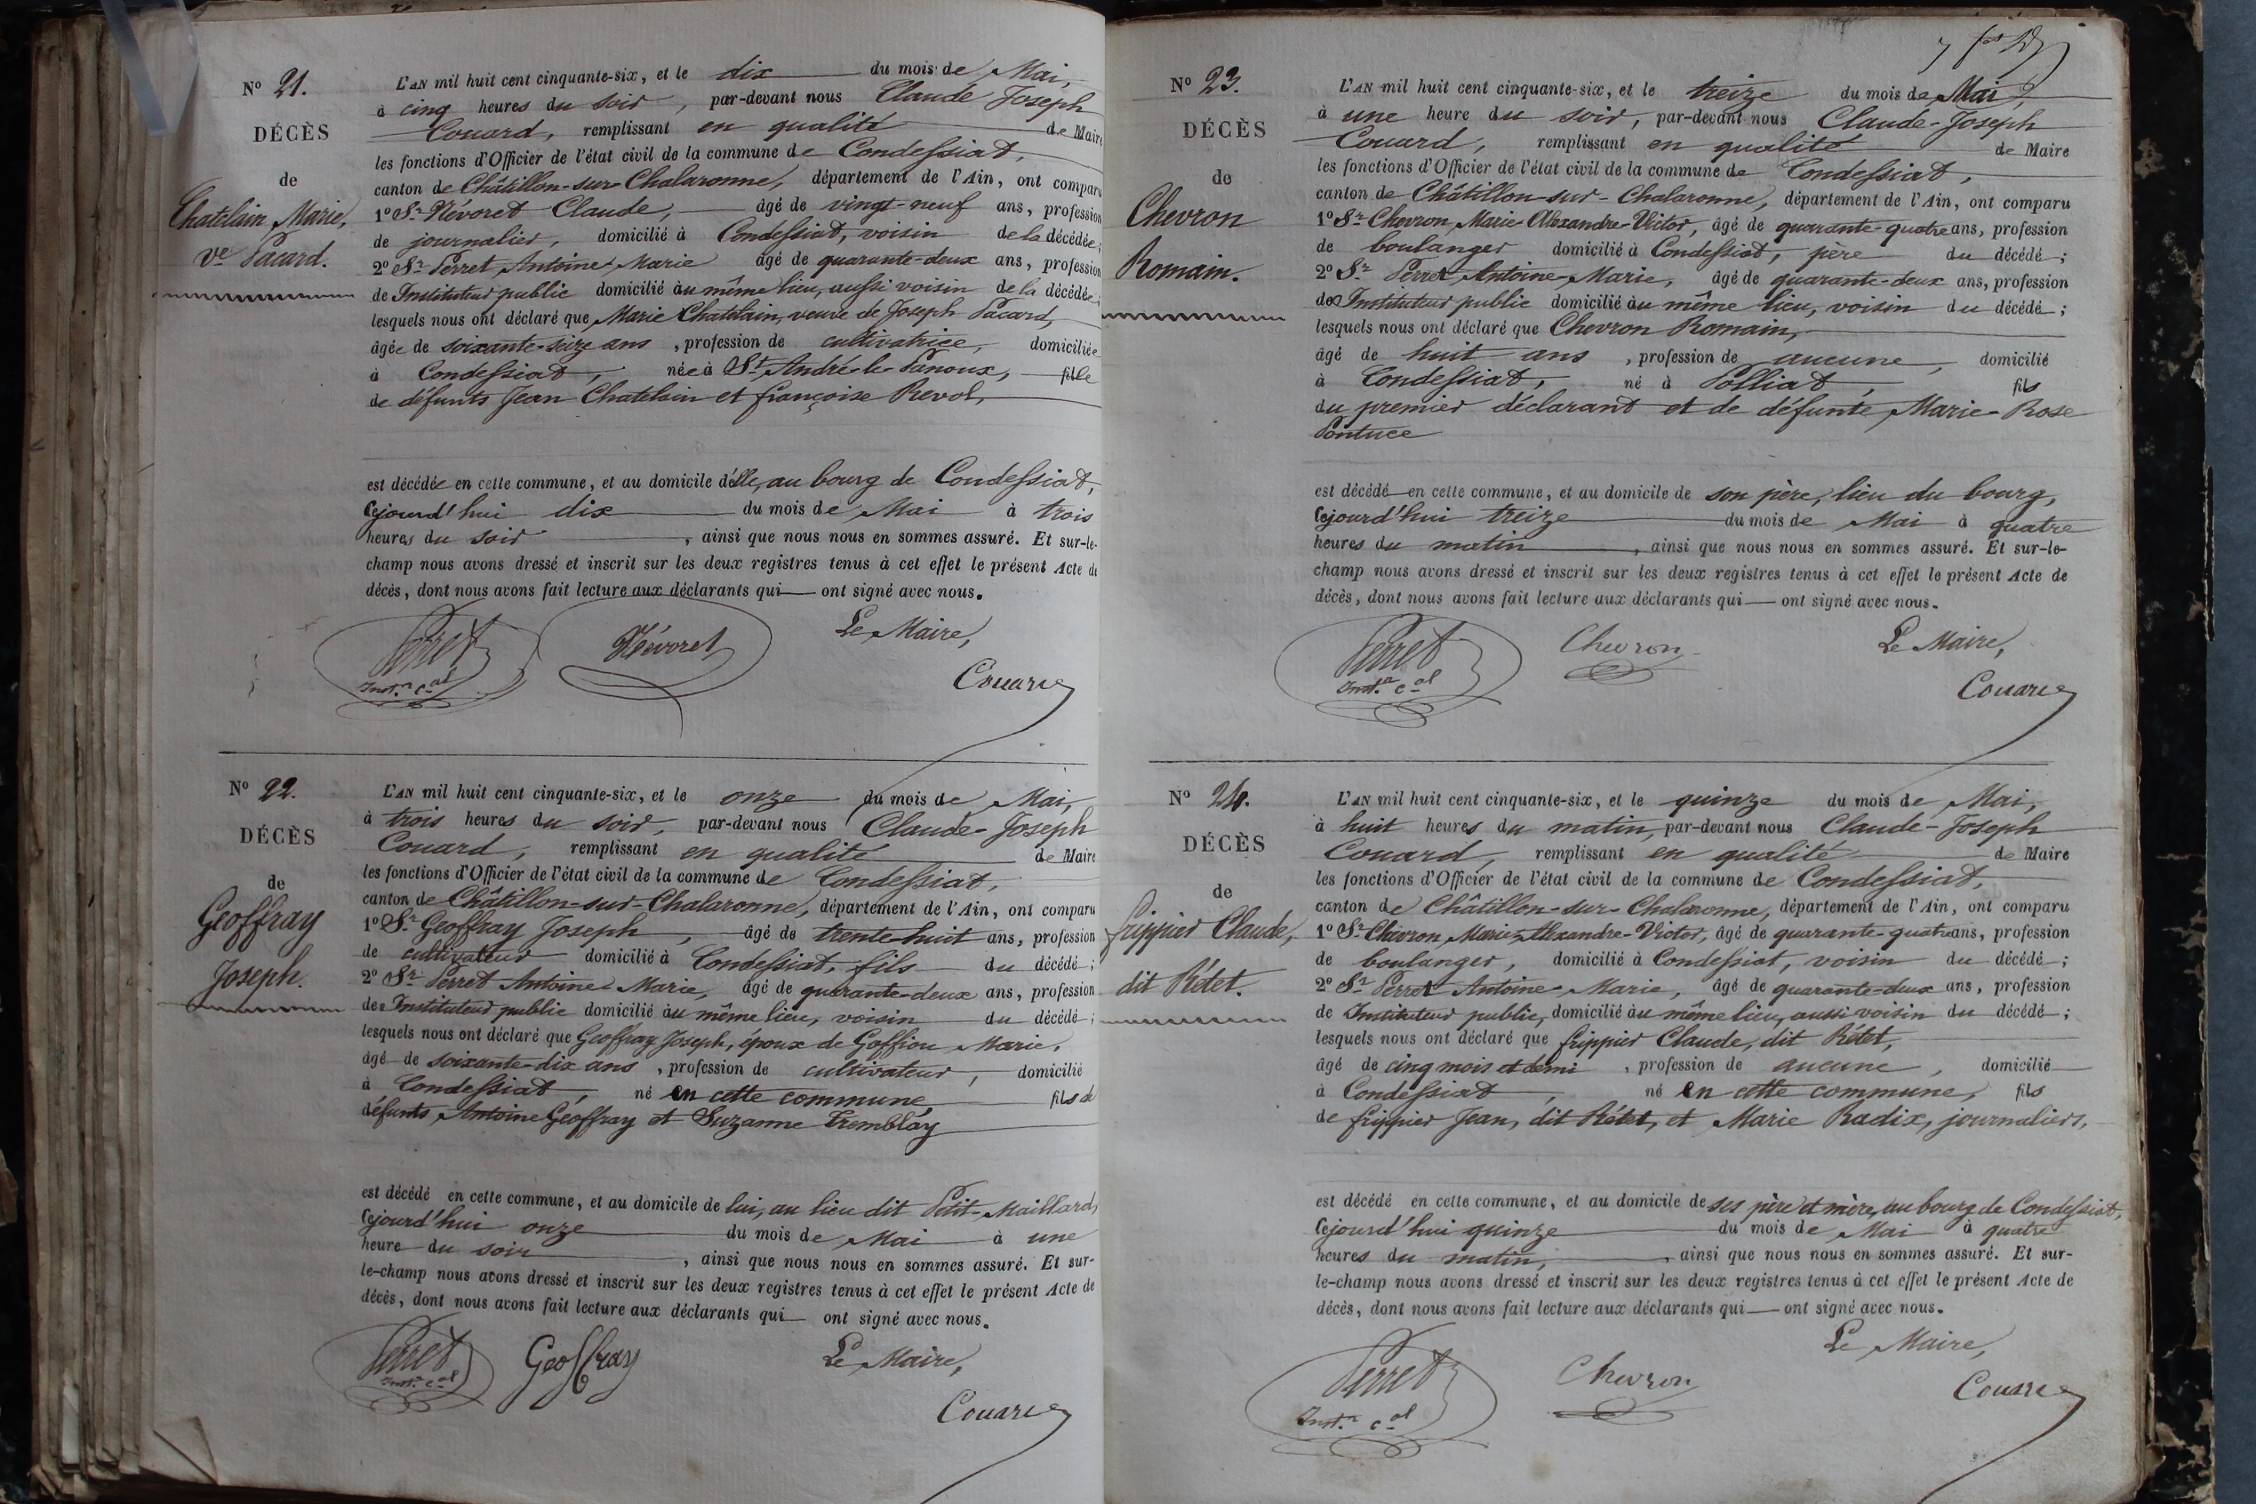 Nº 21.
DÉCÈS
de
Chatelain Marie,
Vᵉ Pacard.
L'AN mil huit cent cinquante-six, et le dix du mois de Mai,
à cinq heures du soir, par-devant nous Claude Joseph
Couard, remplissant en qualité de Maire
les fonctions d'Officier de l'état civil de la commune de Condessiat,
canton de Châtillon-sur-Chalaronne, département de l'Ain, ont comparu
1º Sʳ Névoret Claude, âgé de vingt-neuf ans, profession
de journalier, domicilié à Condessiat, voisin de la décédée;
2º Sʳ Perret Antoine Marie âgé de quarante-deux ans, profession
de Instituteur public domicilié au même lieu, aussi voisin de la décédée;
lesquels nous ont déclaré que Marie Chatelain, veuve de Joseph Pacard,
âgée de soixante-seize ans, profession de cultivatrice, domiciliée
à Condessiat, née à Sᵗ André-le-Panoux, fille
de défunts Jean Chatelain et françoise Revol,
est décédée en cette commune, et au domicile d'elle, au bourg de Condessiat,
Cejourd'hui dix du mois de Mai à trois
heures du soir, ainsi que nous nous en sommes assuré. Et sur-le-
champ nous avons dressé et inscrit sur les deux registres tenus à cet effet le présent Acte de
décès, dont nous avons fait lecture aux déclarants qui ont signé avec nous.
Perret Névoret Le Maire,
Instʳ cᵃˡ Couard
Nº 22.
DÉCÈS
de
Geoffray
Joseph.
L'AN mil huit cent cinquante-six, et le onze du mois de Mai,
à trois heures du soir, par-devant nous Claude-Joseph
Couard, remplissant en qualité de Maire
les fonctions d'Officier de l'état civil de la commune de Condessiat,
canton de Châtillon-sur-Chalaronne, département de l'Ain, ont comparu
1º Sʳ Geoffray Joseph, âgé de trente-huit ans, profession
de cultivateur domicilié à Condessiat, fils du décédé;
2º Sʳ Perret Antoine Marie, âgé de quarante-deux ans, profession
de Instituteur public domicilié au même lieu, voisin du décédé;
lesquels nous ont déclaré que Geoffray Joseph, époux de Goffion Marie,
âgé de soixante-dix ans, profession de cultivateur, domicilié
à Condessiat, né en cette commune, fils de
défunts Antoine Geoffray et Suzanne Tremblay
est décédé en cette commune, et au domicile de lui, au lieu dit Petit-Maillard,
Cejourd'hui onze du mois de Mai à une
heure du soir, ainsi que nous nous en sommes assuré. Et sur-
le-champ nous avons dressé et inscrit sur les deux registres tenus à cet effet le présent Acte de
décès, dont nous avons fait lecture aux déclarants qui ont signé avec nous.
Perret Geoffray Le Maire,
Instʳ cᵃˡ Couard
Nº 23.
DÉCÈS
de
Chevron
Romain.
L'AN mil huit cent cinquante-six, et le treize du mois de Mai,
à une heure du soir, par-devant nous Claude-Joseph
Couard, remplissant en qualité de Maire
les fonctions d'Officier de l'état civil de la commune de Condessiat,
canton de Châtillon-sur-Chalaronne, département de l'Ain, ont comparu
1º Sʳ Chevron Marie-Alexandre-Victor, âgé de quarante-quatre ans, profession
de boulanger domicilié à Condessiat, père du décédé;
2º Sʳ Perret Antoine-Marie, âgé de quarante-deux ans, profession
de Instituteur public domicilié au même lieu, voisin du décédé;
lesquels nous ont déclaré que Chevron Romain,
âgé de huit ans, profession de aucune, domicilié
à Condessiat, né à Polliat, fils
du premier déclarant et de défunte Marie-Rose
Pontuce
est décédé en cette commune, et au domicile de son père, lieu du bourg,
Cejourd'hui treize du mois de Mai à quatre
heures du matin, ainsi que nous nous en sommes assuré. Et sur-le-
champ nous avons dressé et inscrit sur les deux registres tenus à cet effet le présent Acte de
décès, dont nous avons fait lecture aux déclarants qui ont signé avec nous.
Perret Chevron Le Maire,
Instʳ cᵃˡ Couard
Nº 24.
DÉCÈS
de
frippier Claude,
dit Rétet.
L'AN mil huit cent cinquante-six, et le quinze du mois de Mai,
à huit heures du matin, par-devant nous Claude-Joseph
Couard, remplissant en qualité de Maire
les fonctions d'Officier de l'état civil de la commune de Condessiat,
canton de Châtillon-sur-Chalaronne, département de l'Ain, ont comparu
1º Sʳ Chevron Marie-Alexandre-Victor, âgé de quarante-quatre ans, profession
de boulanger, domicilié à Condessiat, voisin du décédé;
2º Sʳ Perret Antoine-Marie, âgé de quarante-deux ans, profession
de Instituteur public, domicilié au même lieu, aussi voisin du décédé;
lesquels nous ont déclaré que frippier Claude, dit Rétet,
âgé de cinq mois et demi, profession de aucune, domicilié
à Condessiat, né en cette commune, fils
de frippier Jean, dit Rétet, et Marie Radix, journaliers,
est décédé en cette commune, et au domicile de ses père et mère, au bourg de Condessiat,
Cejourd'hui quinze du mois de Mai à quatre
heures du matin, ainsi que nous nous en sommes assuré. Et sur-
le-champ nous avons dressé et inscrit sur les deux registres tenus à cet effet le présent Acte de
décès, dont nous avons fait lecture aux déclarants qui ont signé avec nous.
Perret Chevron Le Maire,
Instʳ cᵃˡ Couard